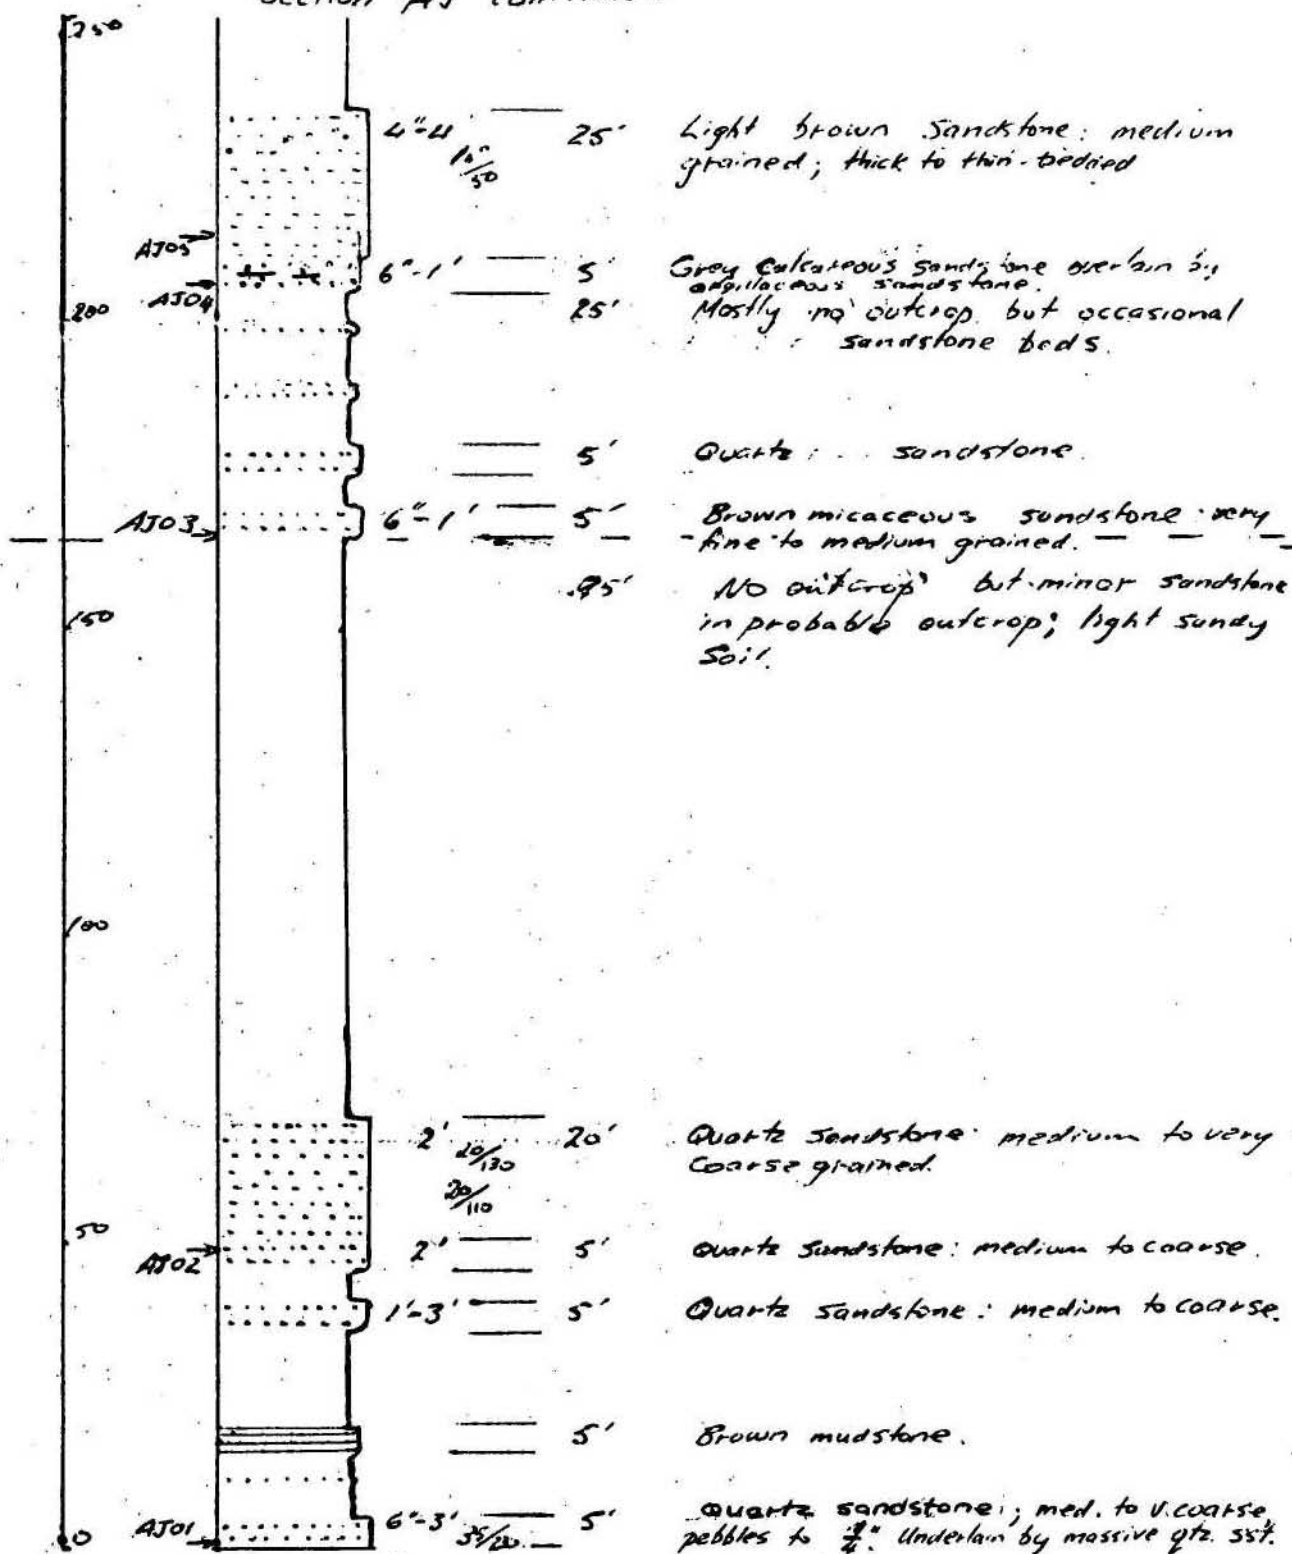 Section AJ
250
4"-4' 25' Light brown sandstone: medium
/50 grained; thick to thin-bedded
AJ05
6"-1' 5' Grey calcareous sandstone overlain by
AJ04 argillaceous sandstone.
200 25' Mostly no outcrop but occasional
sandstone beds.
5' Quartz sandstone.
AJ03 6"-1' 5' Brown micaceous sandstone: very
fine to medium grained.
95' No outcrop but minor sandstone
150 in probable outcrop; light sandy
soil.
100
2' 20/130 20' Quartz sandstone: medium to very
coarse grained.
20/110
50
AJ02 2' 5' Quartz sandstone: medium to coarse.
1'-3' 5' Quartz sandstone: medium to coarse.
5' Brown mudstone.
0 AJ01 6"-3' 5' Quartz sandstone; med. to v. coarse,
pebbles to Underlain by massive qtz. sst.